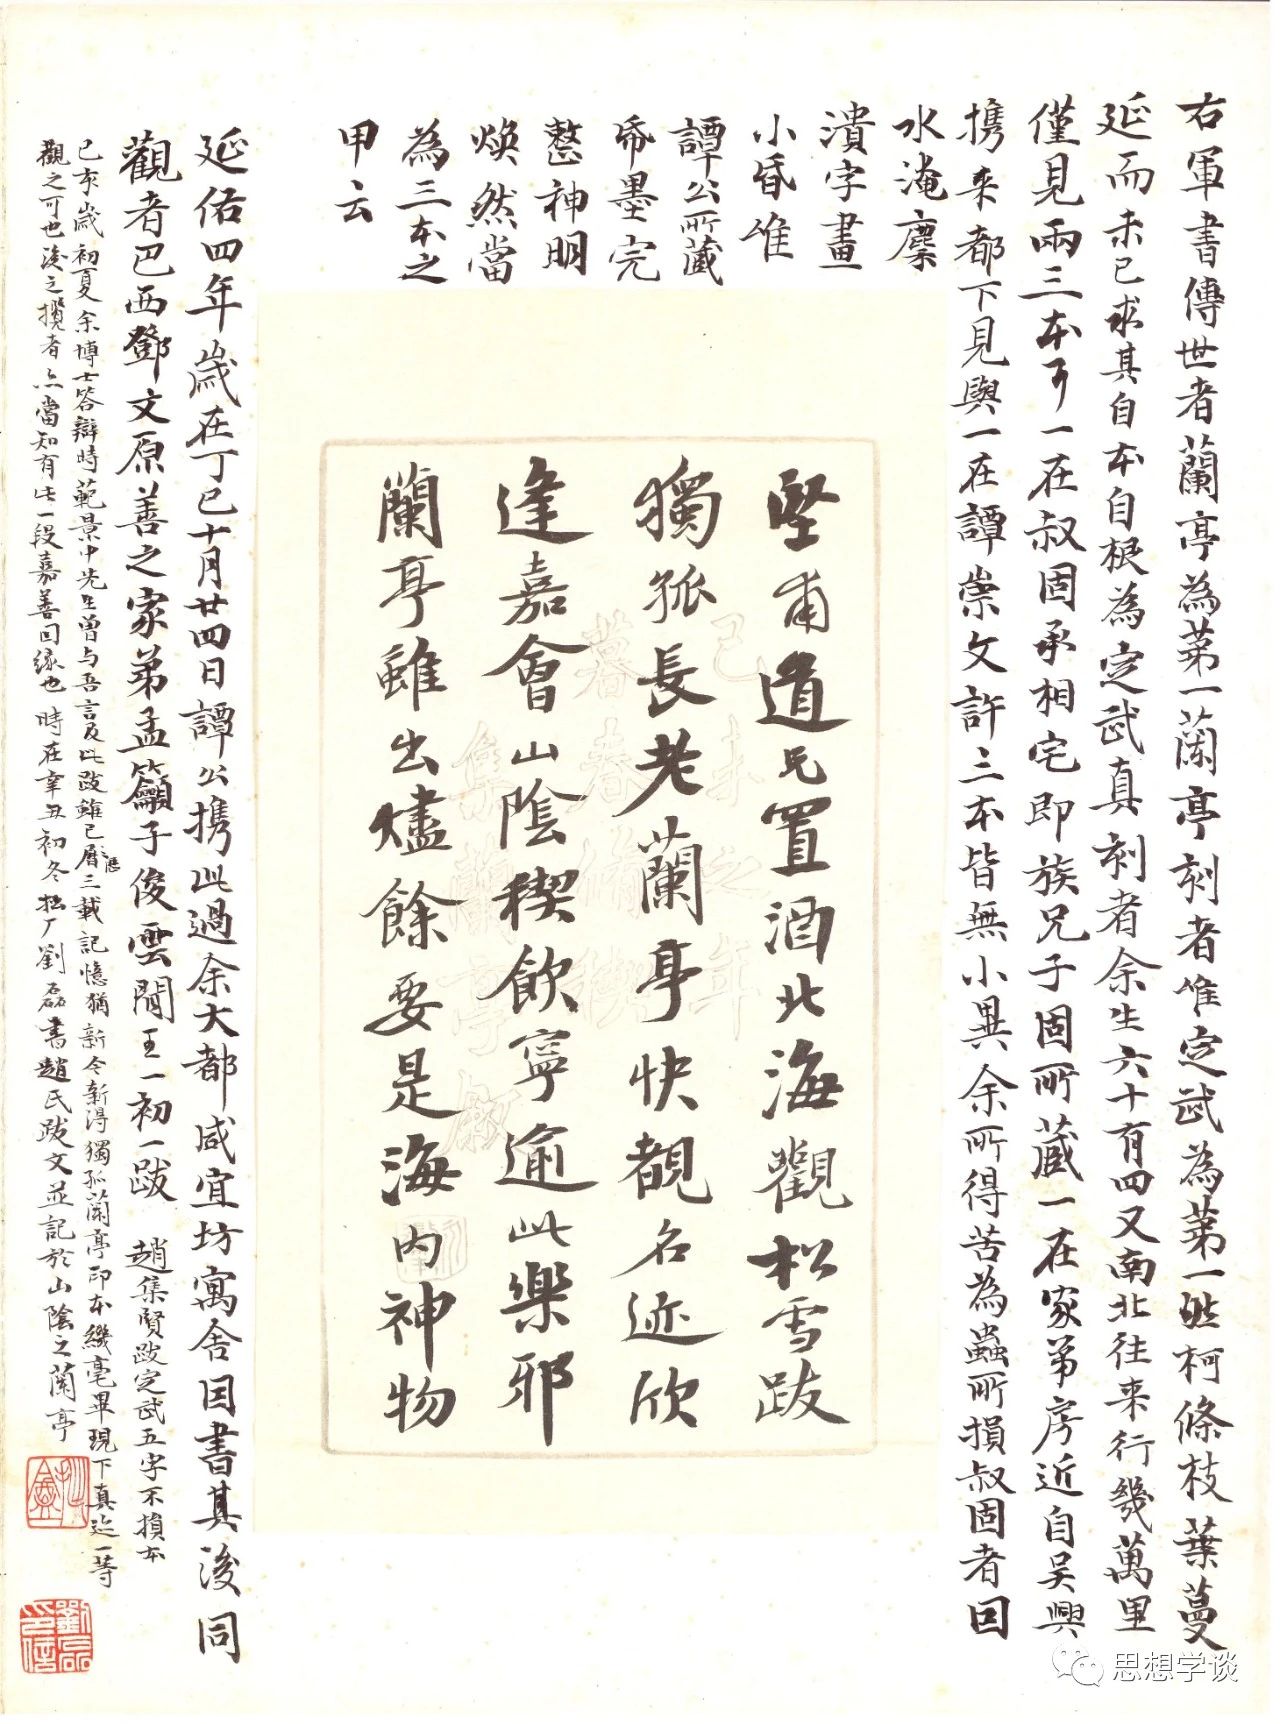 右軍書傳世者蘭亭為第一蘭亭刻者惟定武為第一然柯條枝葉蔓
延而未已求其自本自根為定武真刻者余生六十有四又南北往来行幾萬里
僅見兩三本耳一在叔固承相宅即族兄子固所蔵一在家弟房近自吴興
携来都下見與一在譚崇文許三本皆無小異余所得苦為蟲所損叔固者因
水淹麋
潰字畫
小昏惟
譚公所蔵
帋墨完
整神明
煥然當
為三本之
甲云
堅甫道兄置酒北海觀松雪跋
獨孤長老蘭亭快覩名迹欣
逢嘉會山陰稧飲寧逾此樂邪
蘭亭雖出燼餘要是海内神物
己未之年
暮春脩稧
集蘭亭叙
延佑四年歲在丁巳十月廿四日譚公携此過余大都咸宜坊寓舍因書其後同
觀者巴西鄧文原善之家弟孟籲子俊雲間王一初一跋 趙集賢跋定武五字不損本
己亥歲初夏余博士答辯時範景中先生曾与吾言及此跋雖已曆歷三載記憶猶新今新得獨孤蘭亭印本幾毫畢現下真迹一等
觀之可也後之攬者亦當知有此一段嘉善因缘也 時在辛丑初冬松厂劉磊書趙氏跋文並記於山陰之蘭亭
劉磊印信
思想学谈